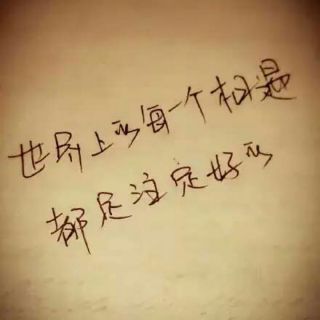 世界上的每一个相遇
都是注定好的